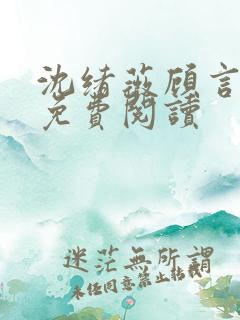 沈绪薇顾言
免費閱讀
迷茫無所謂
未经同意禁止转载